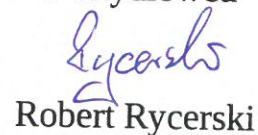 Rycerski
Robert Rycerski